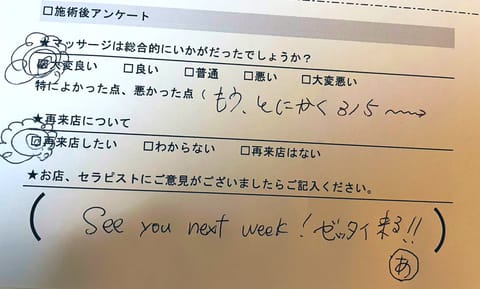 □施術後アンケート
★マッサージは総合的にいかがだったでしょうか？
☑大変良い □良い □普通 □悪い □大変悪い
特によかった点、悪かった点（もう、とにかく
★再来店について
☑再来店したい □わからない □再来店はない
★お店、セラピストにご意見がございましたらご記入ください。
(See you next week! ゼッタイ来る!!)
あ